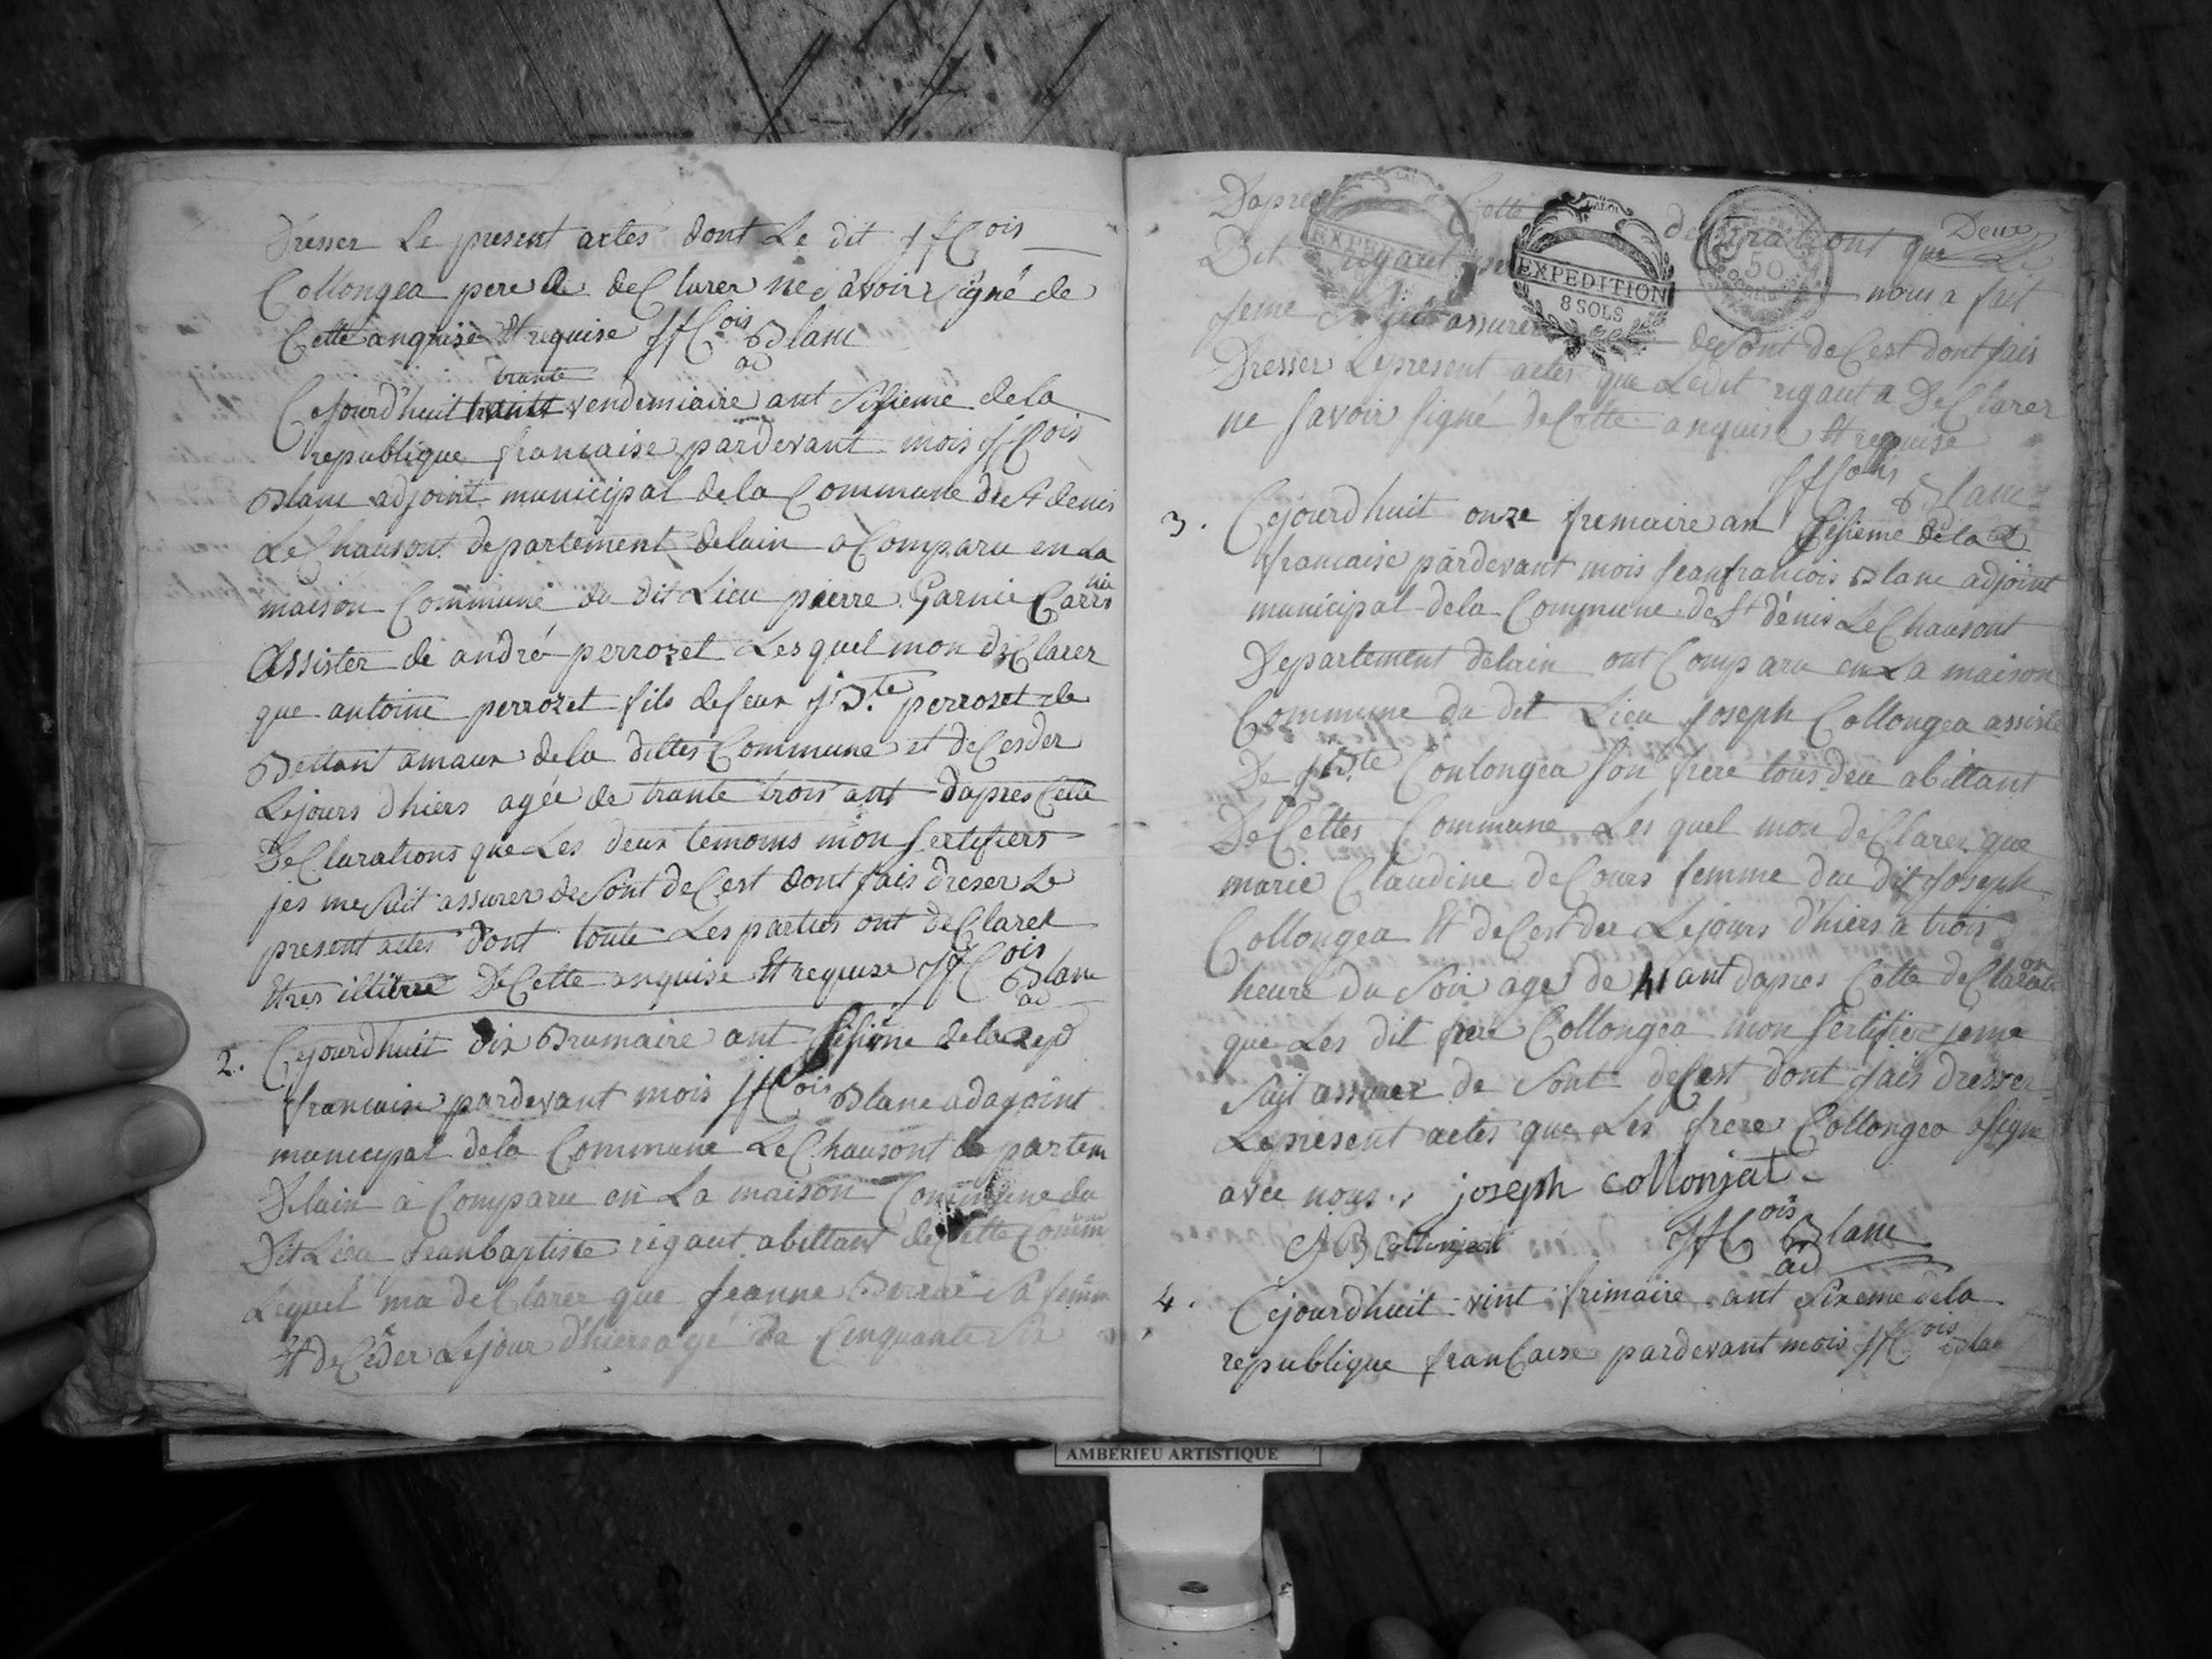 Dresser Le present actes dont Le dit jfcois
Collongea pere de deClarer ne Savoir signé de
Cette anquise Et requise jfcois Blanc
ad
trante
Cejourd'huit trante vendemiaire ant Sisieme dela
republique francaise pardevant mois jfcois
Blanc adjoint municipal dela Commune de St denis
LeChausont departement delain a Comparu en La
maison Commune du dit Lieu pierre Garnié
Assister de andré perrozet Lesquel mon deClarer
que antoine perrozet fils defeux jBte perrozet de
Bettant amaux dela dittes Commune et deCesder
Lejours dhiers agée de trante trois ant dapres Cette
DeClarations que Les deux temoins mon Sertifiers
jes me suit assurer deSont deCest dont jais dreser Le
present actes dont toute Les parties ont deClarer
Etres illitrée DeCette anquise Et requise jfcois
Blanc
ad
2. Cejourdhuit dix Brumaire ant Sisieme dela rep
francaise pardevant mois jfcois Blanc adajoint
municipal dela Commune LeChausont departem
Delain a Comparu en La maison Commune du
Dit Lieu jeanbaptiste rigaut abittant deCette Comm
Lequel ma deClarer que jeanne Sa femm
Et deCéder Lejour d'hiers agé de Cinquante
Deux
Dapres Cette declarationt que Le
Dit rigaut nous a fait
jeme suit assurer deSont deCest dont jais
Dresser Lepresent actes que Ledit rigaut a DeClarer
ne Savoir signé deCette anquise Et requise
jfcois Blanc
EXPEDITION
EXPEDITION
8 SOLS
50
3. Cejourdhuit onze frimaire an Sisieme dela
francaise pardevant mois jeanfrancois Blanc adjoint
municipal dela Commune de St dénis LeChausont
Departement delain ont Comparu en La maison
Commune du dit Lieu joseph Collongea assisté
De jBte Conlongea Son frere tous deu abittant
DeCettes Commune Les quel mon deClarer que
marie Claudine deCours femme du dit joseph
Collongea Et deCesder Lejours d'hiers a trois
heure du Soir age de 41 ant dapres Cette deClaration
que Les dit frere Collongea mon Sertifier jeme
Suit assurer de Sont deCest dont jais dresser
Lepresent actes que Les frere Collongea a signe
avec nous joseph collonjat
J B collonjeat jfcois Blanc
ad
4. Cejourdhuit vint frimaire ant Sixeme dela
republique francaise pardevant mois jfcois Blan
AMBERIEU ARTISTIQUE